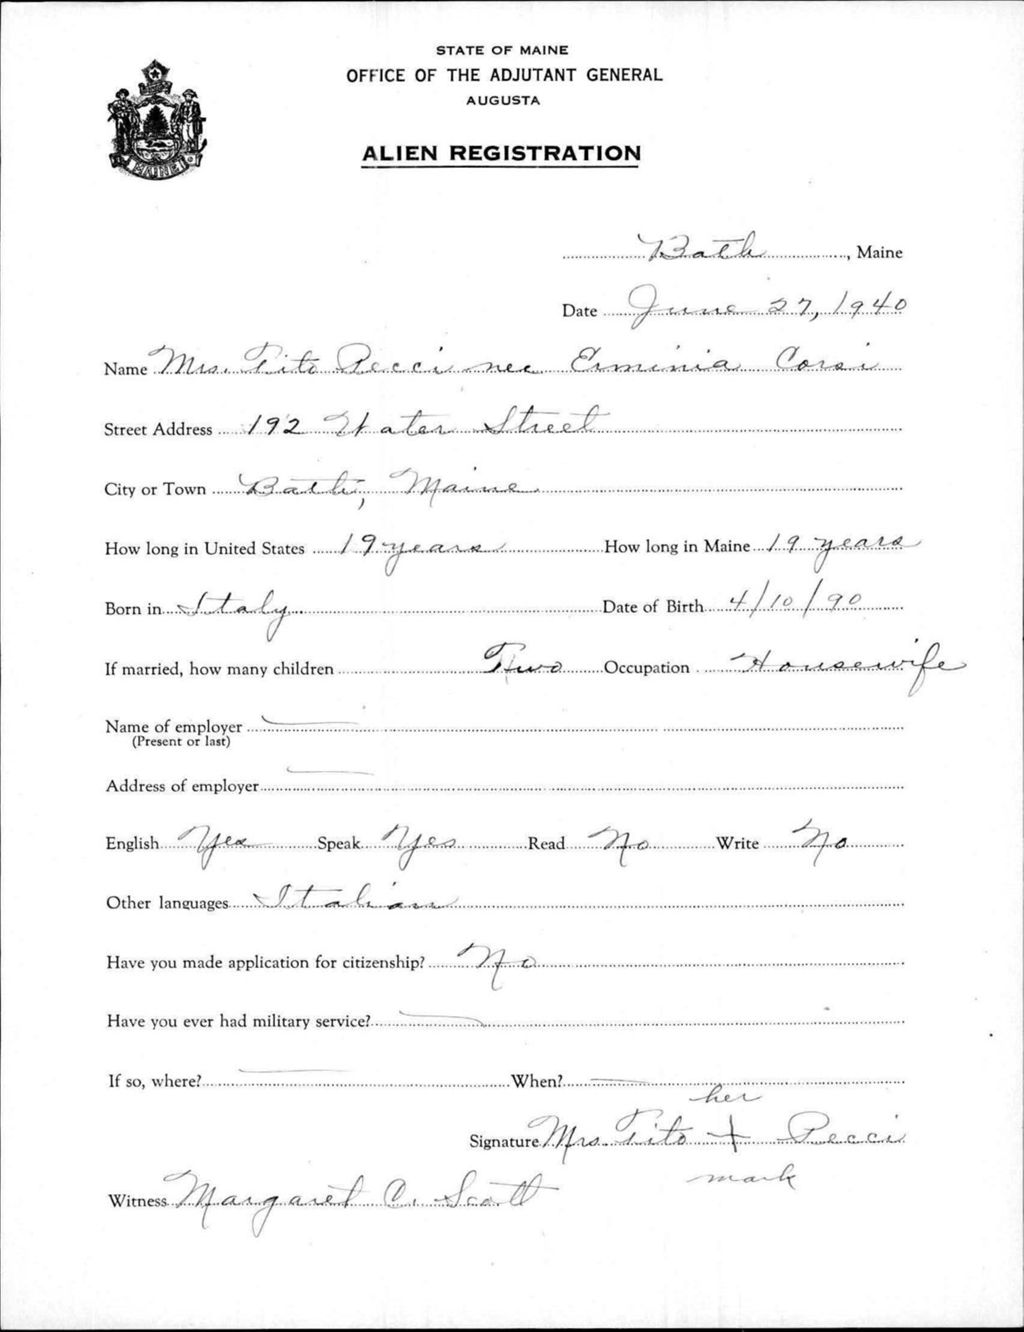 STATE OF MAINE
OFFICE OF THE ADJUTANT GENERAL
AUGUSTA
ALIEN REGISTRATION
MAINE
Bath, Maine
Date June 27, 1940
Name Mrs. Tito Pecci nee Erminia Corsi
Street Address 192 Water Street
City or Town Bath, Maine
How long in United States 19 years How long in Maine 19 years
Born in Italy Date of Birth 4/10/90
If married, how many children Two Occupation Housewife
Name of employer —
(Present or last)
Address of employer —
English Yes Speak Yes Read No Write No
Other languages Italian
Have you made application for citizenship? No
Have you ever had military service? —
If so, where? — When? —
her
Signature Mrs. Tito + Pecci
mark
Witness Margaret C. Scott